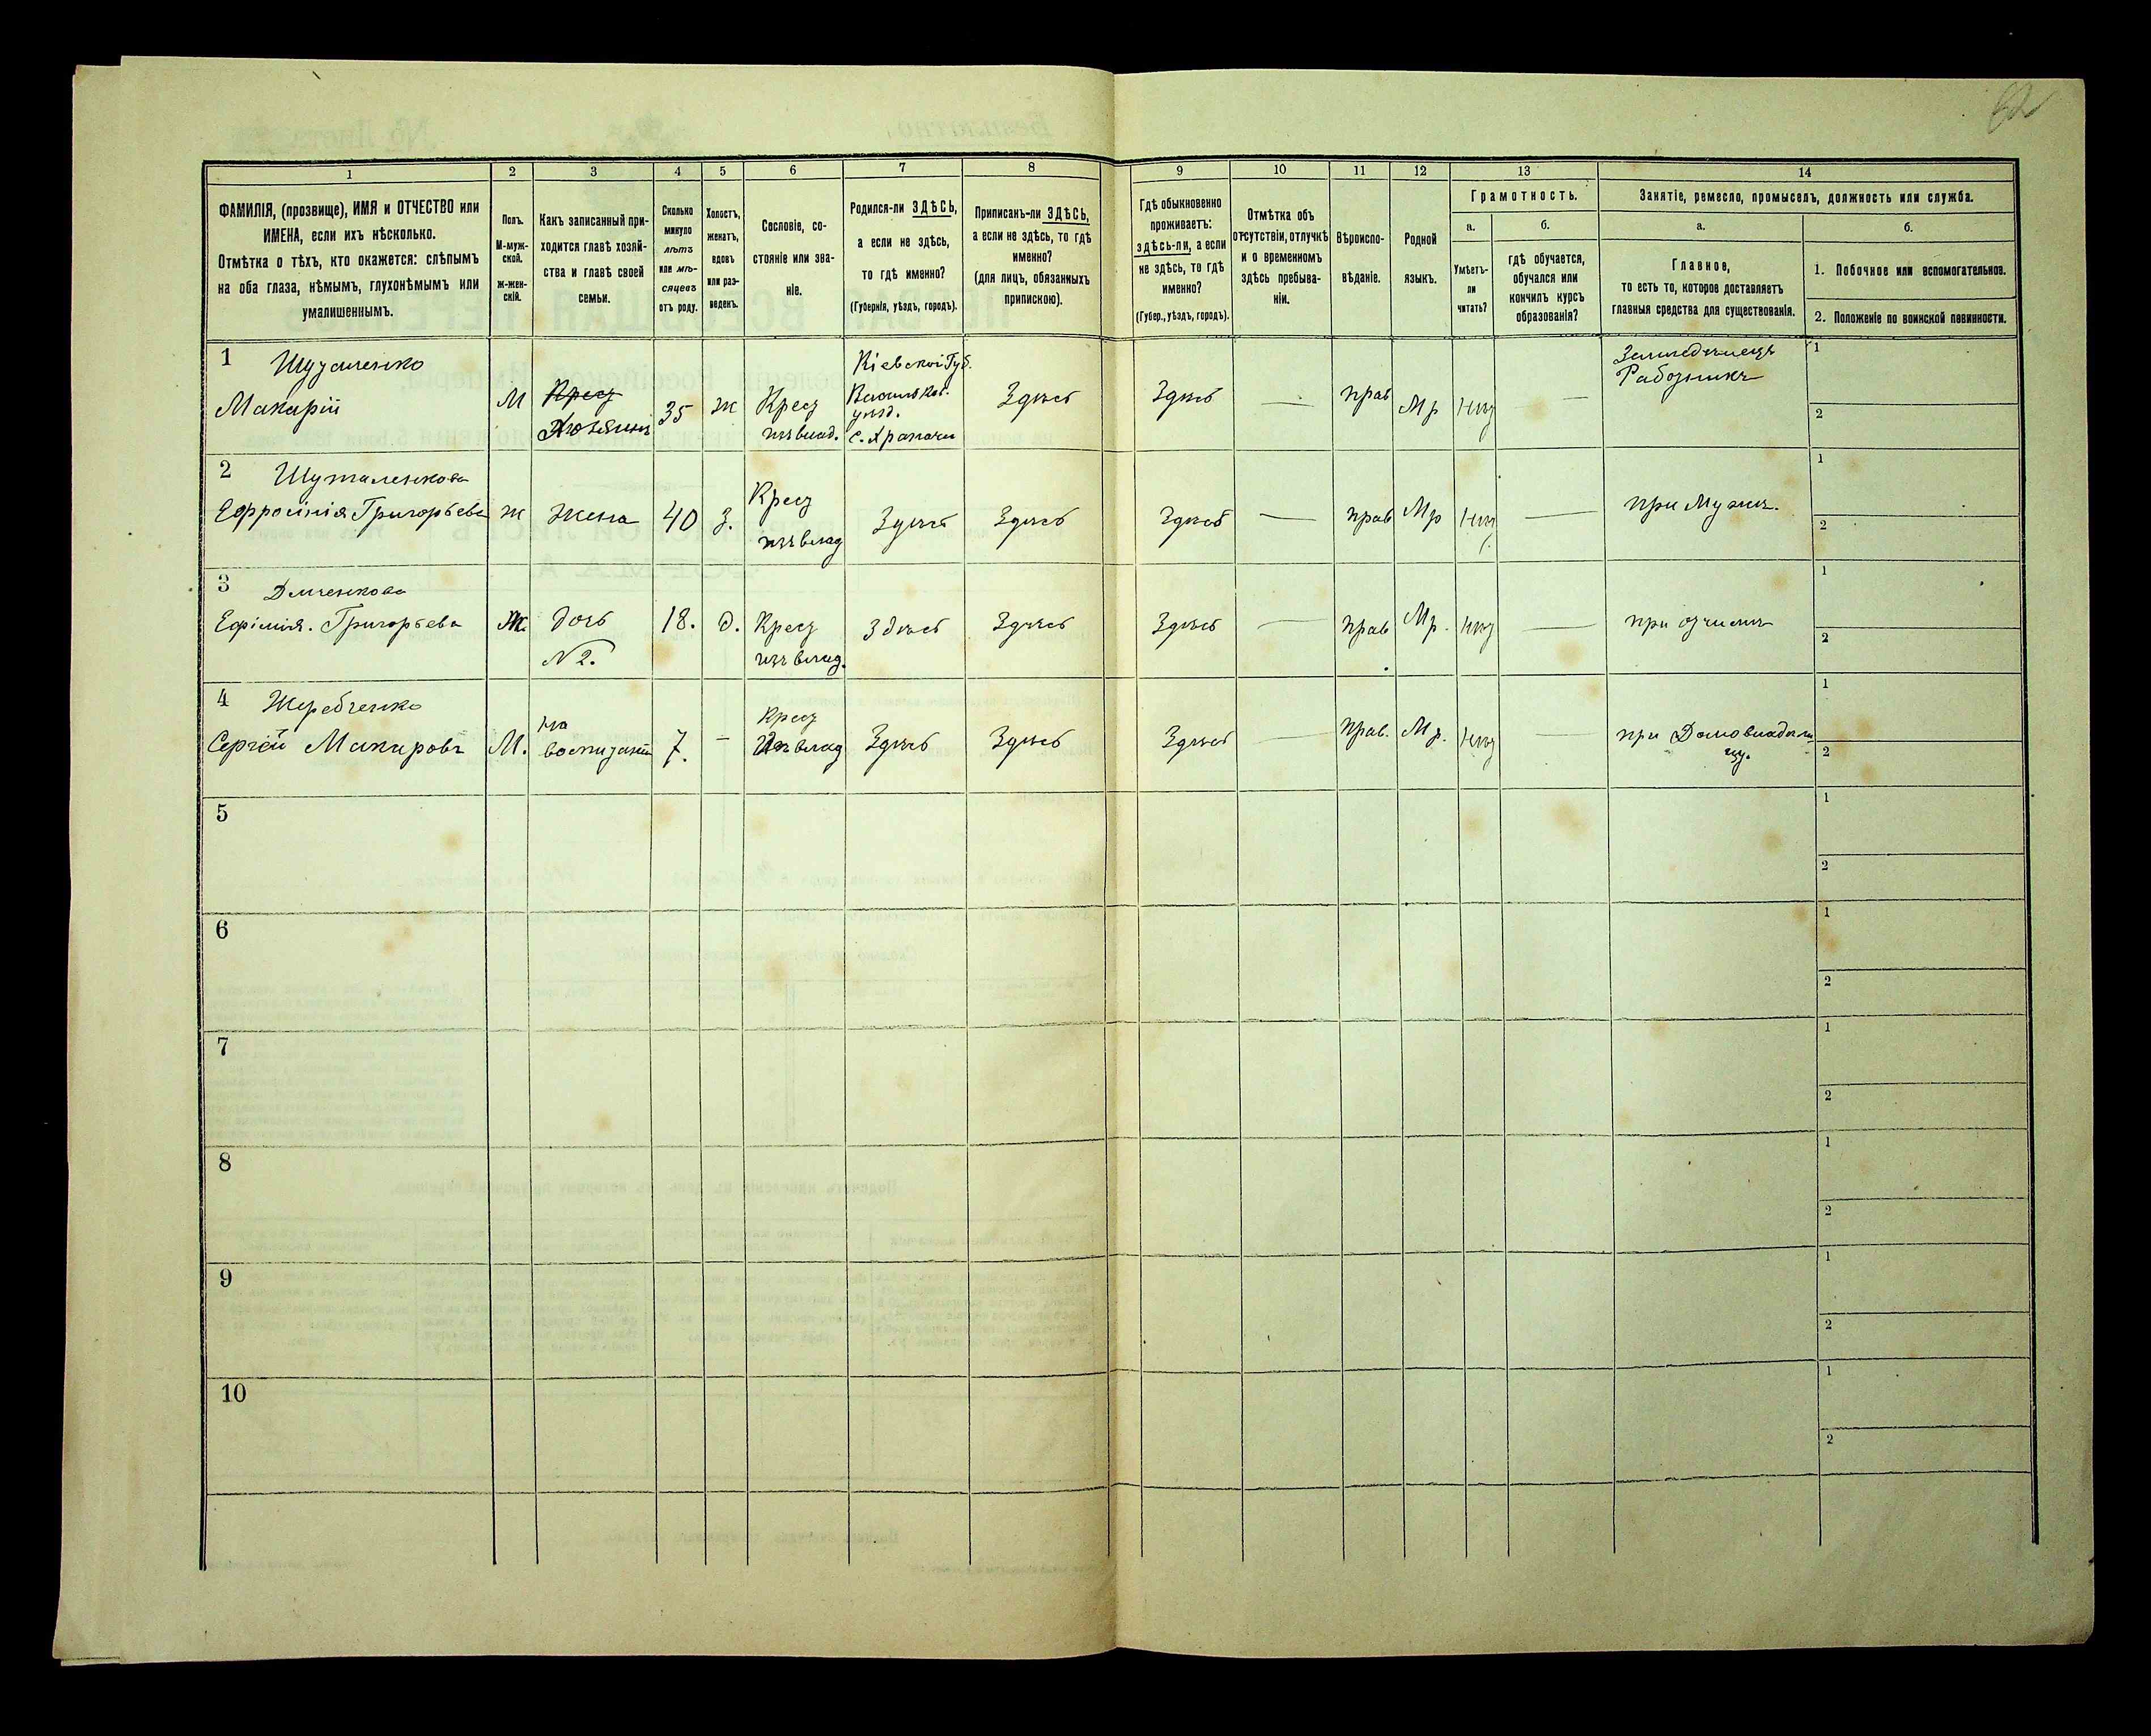 62
1 2 3 4 5 6 7 8 9 10 11 12 13 14
ФАМИЛІЯ, (прозвище), ИМЯ и ОТЧЕСТВО или
ИМЕНА, если ихъ нѣсколько.
Отмѣтка о тѣхъ, кто окажется: слѣпымъ
на оба глаза, нѣмымъ, глухонѣмымъ или
умалишеннымъ.
Полъ.
М-муж-
ской.
ж-жен-
скій.
Какъ записанный при-
ходится главѣ хозяй-
ства и главѣ своей
семьи.
Сколько
минуло
лѣтъ
или мѣ-
сяцевъ
отъ роду.
Холостъ,
женатъ,
вдовъ
или раз-
веденъ.
Сословіе, со-
стояніе или зва-
ніе.
Родился-ли ЗДѢСЬ,
а если не здѣсь,
то гдѣ именно?
(Губернія, уѣздъ, городъ).
Приписанъ-ли ЗДѢСЬ,
а если не здѣсь, то гдѣ
именно?
(для лицъ, обязанныхъ
припискою).
Гдѣ обыкновенно
проживаетъ:
здѣсь-ли, а если
не здѣсь, то гдѣ
именно?
(Губер., уѣздъ, городъ).
Отмѣтка объ
отсутствіи, отлучкѣ
и о временномъ
здѣсь пребыва-
ніи.
Вѣроиспо-
вѣданіе.
Родной
языкъ.
Грамотность.
а.
Умѣетъ-
ли
читать?
б.
гдѣ обучается,
обучался или
кончилъ курсъ
образованія?
Занятіе, ремесло, промыселъ, должность или служба.
а.
Главное,
то есть то, которое доставляетъ
главныя средства для существованія.
б.
1. Побочное или вспомогательное.
2. Положеніе по воинской повинности.
1
Макарій
М
Крест
Хозяинъ
35
ж
Крест
изъ влад.
Кіевской Губ.
Васильков.
уѣзд.
Здѣсь
Здѣсь
—
прав
Мр
нѣт
—
Земледѣлецъ
Работникъ
1
2
2
Ефросинія Григорьева
ж
Жена
40
З.
Крест
изъ влад
Здѣсь
Здѣсь
Здѣсь
—
прав
Мр
нѣт
—
при Мужѣ.
1
2
3
Ефимія. Григорьева
Ж.
дочь
№ 2.
18.
д.
Крест
изъ влад.
Здѣсь
Здѣсь
Здѣсь
—
прав
Мр.
нѣт
—
при отчимѣ
1
2
4 Жеребченко
Сергѣй Макаровъ
М.
на
воспитаніи
7.
—
Крест
Изъ влад
Здѣсь
Здѣсь
Здѣсь
—
прав.
Мр.
нѣт
—
при Домовладѣль
цу.
1
2
5
1
2
6
1
2
7
1
2
8
1
2
9
1
2
10
1
2